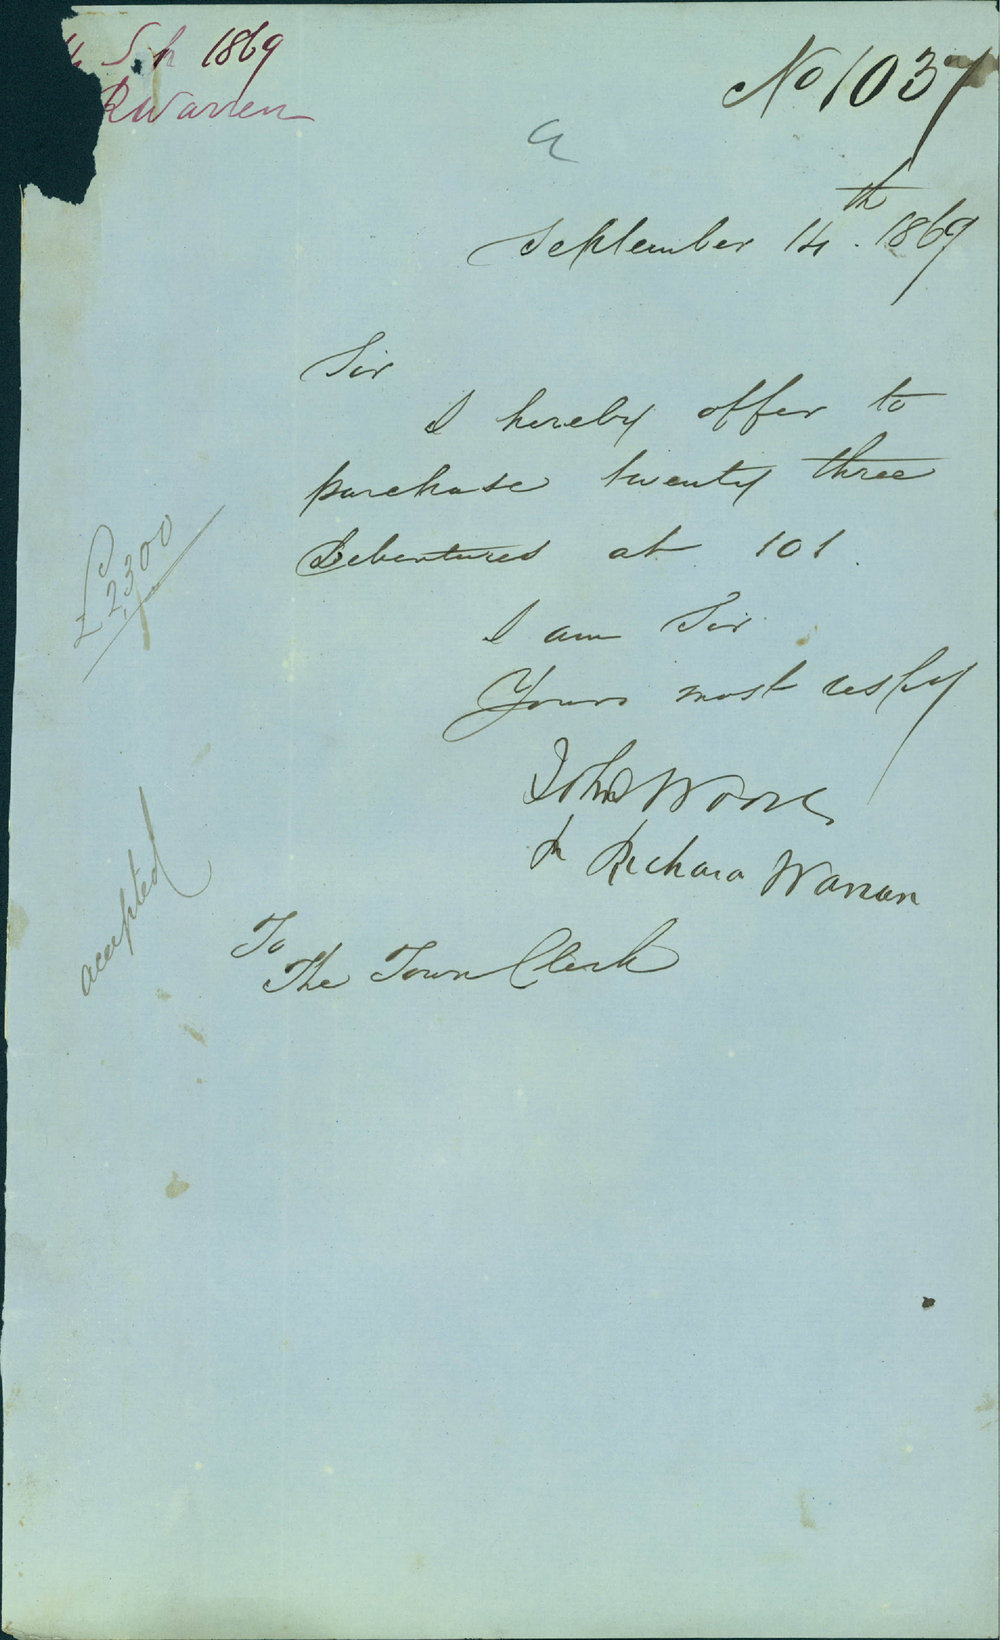 Sep 1869
R Warren
No 1037
a
September 14th. 1869
Sir
I hereby offer to
purchase twenty three
Debentures at 101.
I am Sir
Yours most respy
John Moore
Richard Warren
To
The Town Clerk
£2,300
accepted